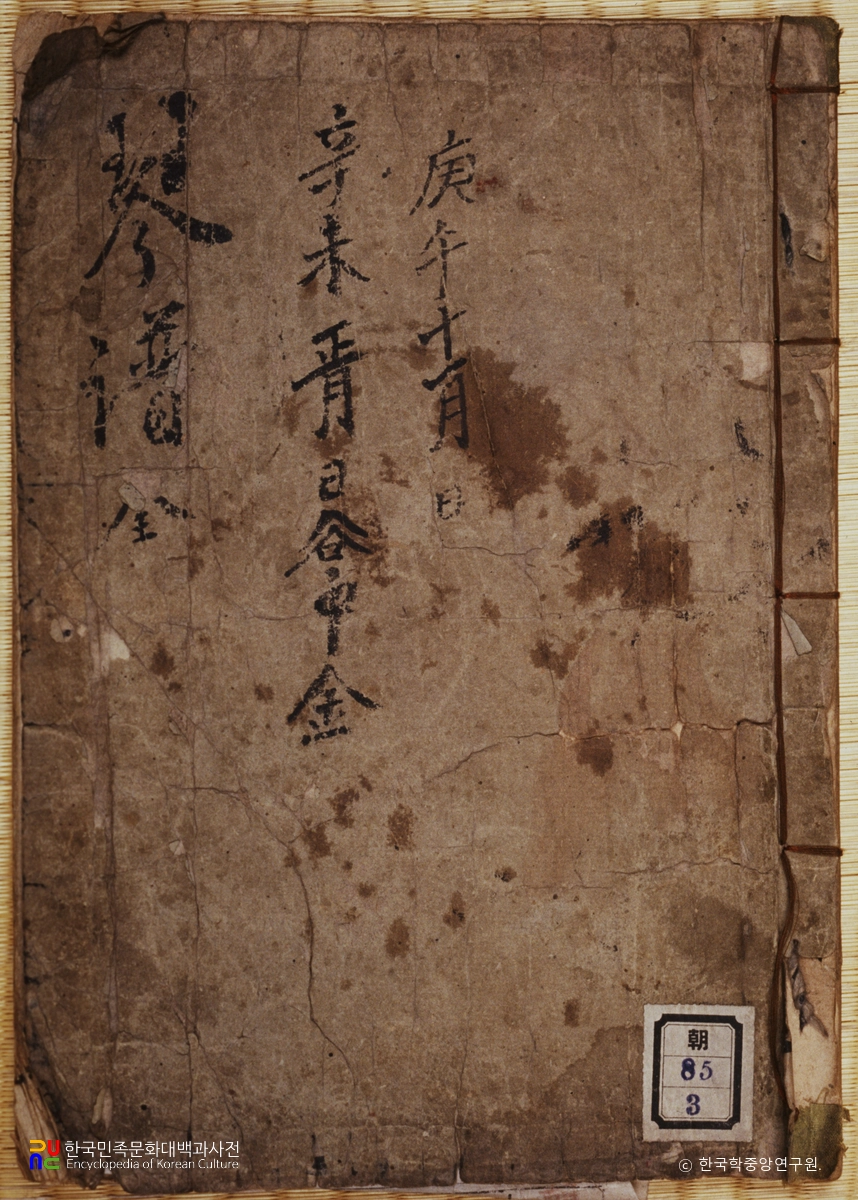 庚午十一月 日
辛未 正月 日 谷中 金
琴譜 全
朝
85
3
한국민족문화대백과사전
Encyclopedia of Korean Culture
© 한국학중앙연구원.